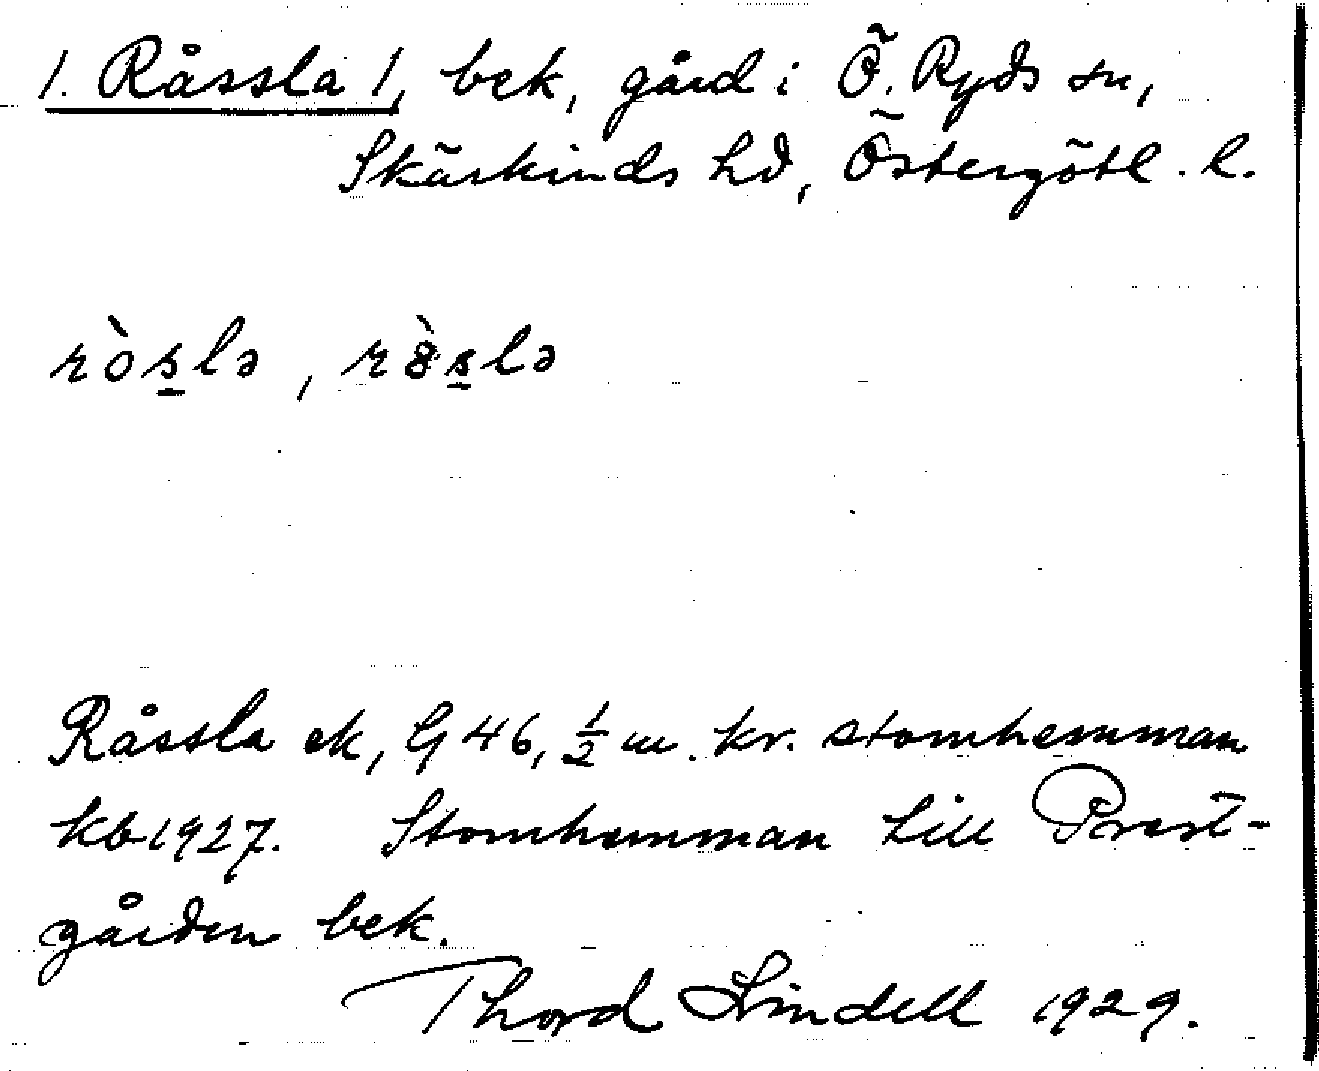 1. Råssla 1, bek, gård i Ö. Ryds sn,
Skärkinds hd, Östergötl. l.
ròs̲lə, rȣ̀s̲lə
Råssla ek, G 46, ½ m. kr. stomhemman
kb 1927. Stomhemman till Prest-
gården bek.
Thord Lindell 1929.